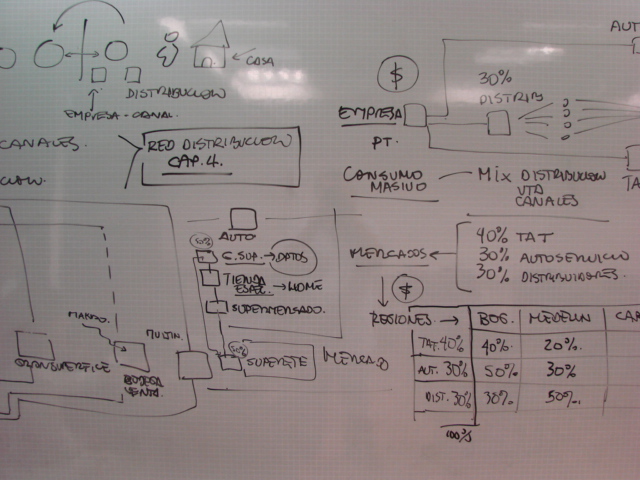 CASA
DISTRIBUCION
EMPRESA - CANAL
CANALES.
RED DISTRIBUCION
CAP. 4.
AUTO
50%
C. SUP. → DATOS
TIENDA
ESPEC. → HOME
SUPERMERCADO.
50%
SUPERETE
MERCADO
MULTIN.
BODEGA
VENTO.
GRANSUPERFICE
AUT
$
30%
DISTRIB
EMPRESA
PT.
TA
CONSUMO
MASIVO
Mix DISTRIBUCION
VTA
CANALES
MERCADOS
40% TAT
30% AUTOSERVICIO
30% DISTRIBUIDORES.
$
REGIONES → BOG. MEDELLIN CAR
TAT. 40% 40%. 20%.
AUT. 30% 50%. 30%
DIST. 30% 30%. 50%.
100%